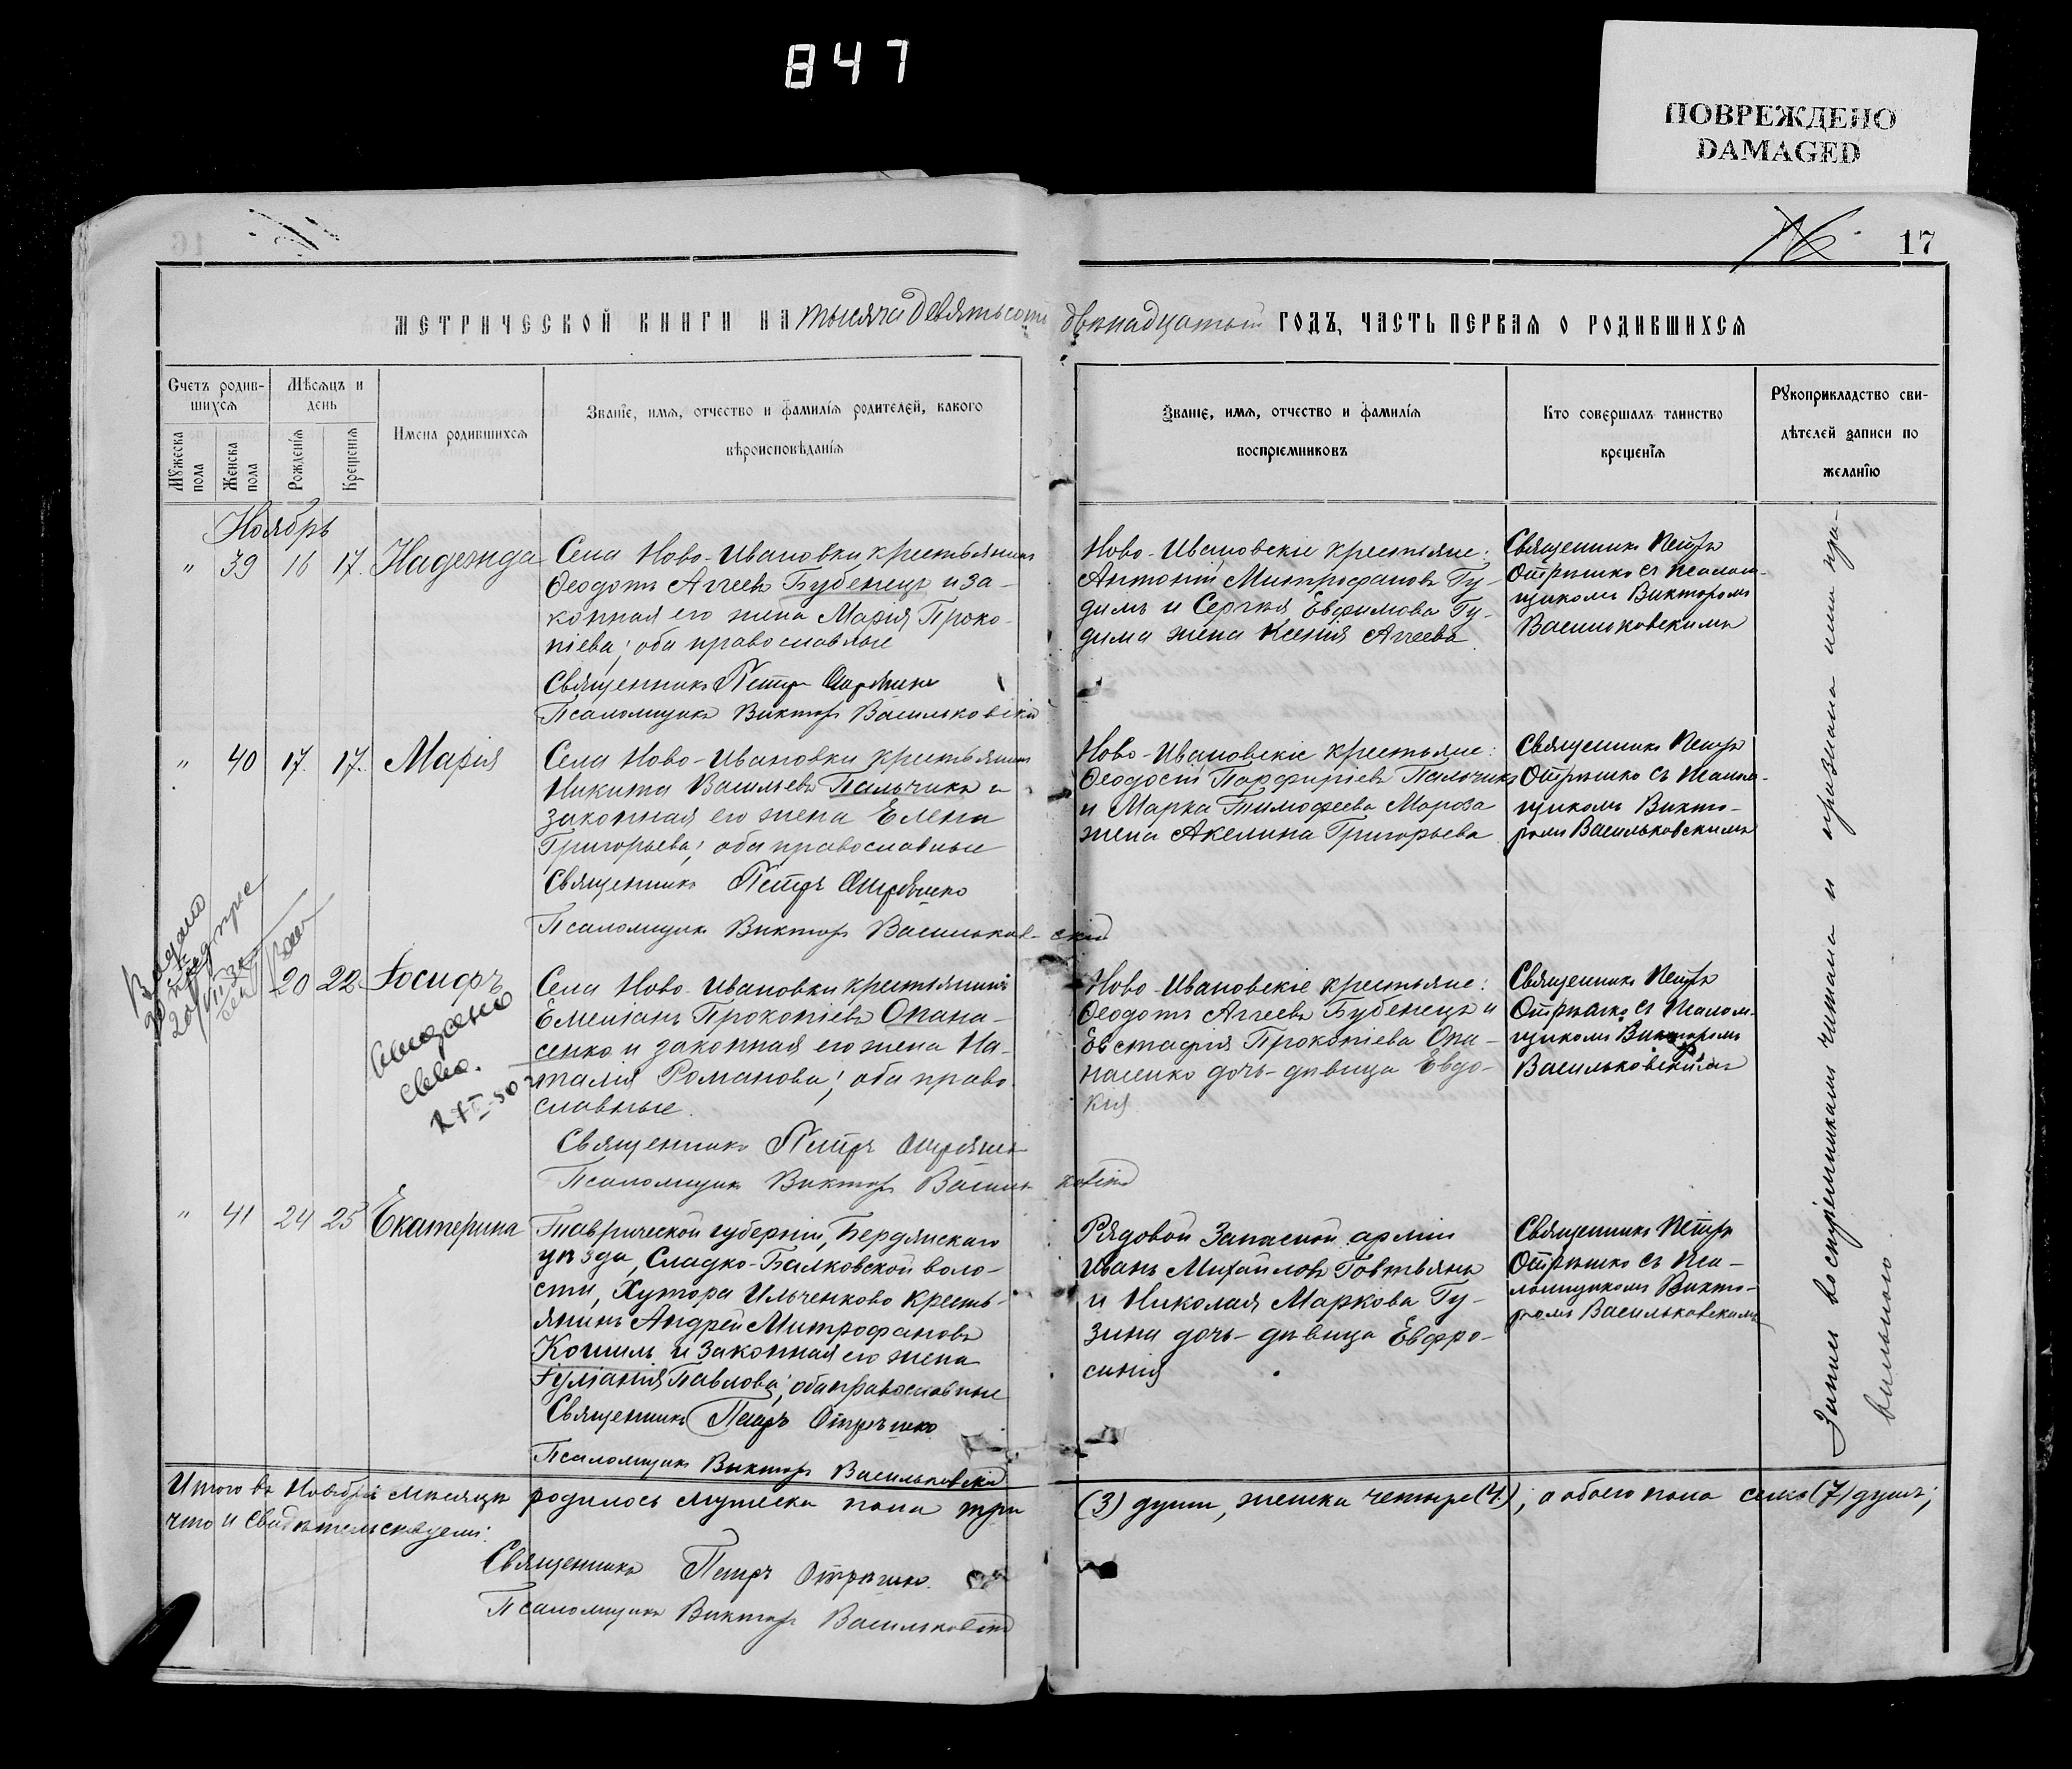 847
ПОВРЕЖДЕНО
DAMAGED
16
17
МЕТРИЧЕСКОЙ КНИГИ НА тысяча девятьсотъ двѣнадцатый ГОДЪ, ЧАСТЬ ПЕРВАЯ О РОДИВШИХСЯ
Счетъ родив-
шихся
Мужеска
пола
Женска
пола
Мѣсяцъ и
день
Рожденія
Крещенія
Имена родившихся
Званіе, имя, отчество и фамилія родителей, какого
вѣроисповѣданія
Званіе, имя, отчество и фамилія
воспріемниковъ
Кто совершалъ таинство
крещенія
Рукоприкладство сви-
дѣтелей записи по
желанію
Ноябрь
" 39 16 17. Надежда
Села Ново-Ивановки крестьянинъ
Ѳеодотъ Аггеевъ Бубенецъ и за-
конная его жена Марія Проко-
піева; оба православные
Священникъ Петръ Отрѣшко
Псаломщикъ Викторъ Васильковскій
Ново-Ивановскіе крестьяне:
Антоній Митрофановъ Гу-
димъ и Сергія Евфимова Гу-
дима жена Ксенія Аггеева
Священникъ Петръ
Отрѣшко съ псалом-
щикомъ Викторомъ
Васильковскимъ
" 40 17. 17. Марія
Села Ново-Ивановки крестьянинъ
Никита Васильевъ Пальчикъ и
законная его жена Елена
Григорьева; оба православные
Священникъ Петръ Отрѣшко
Псаломщикъ Викторъ Васильков-скій
Ново-Ивановскіе крестьяне:
Ѳеодосій Порфиріевъ Пальчикъ
и Марка Тимофеева Мороза
жена Акелина Григорьева
Священникъ Петръ
Отрѣшко съ псалом-
щикомъ Викто-
ромъ Васильковскимъ
Выдано
20 22 Іосифъ
Выдано
свид.
Села Ново-Ивановки крестьянинъ
Емеліанъ Прокопіевъ Опана-
сенко и законная его жена На-
талія Романова; оба право-
славные.
Священникъ Петръ Отрѣшко
Псаломщикъ Викторъ Василь-ковскій
Ново-Ивановскіе крестьяне:
Ѳеодотъ Аггеевъ Бубенецъ и
Евстафія Прокопіева Опа-
насенко дочь-дѣвица Евдо-
кія
Священникъ Петръ
Отрѣшко съ псалом-
щикомъ Викторомъ
Васильковскимъ
" 41 24 25 Екатерина
Таврической губерніи, Бердянскаго
уѣзда, Сладко-Балковской воло-
сти, Хутора Ильченково кресть-
янинъ Андрей Митрофановъ
Кошиль и законная его жена
Іуліанія Павлова; оба православные
Священникъ Петръ Отрѣшко
Псаломщикъ Викторъ Васильковскій
Рядовой Запасной арміи
Иванъ Михайловъ Говтьянъ
и Николая Маркова Гу-
зина дочь-дѣвица Евфро-
синія
Священникъ Петръ
Отрѣшко съ пса-
ломщикомъ Викто-
ромъ Васильковскимъ
Запись воспріемникамъ читана и признана ими пра-
вильною.
Итого въ Ноябрѣ мѣсяцѣ родилось мужеска пола три (3) души, женска четыре (4), а обоего пола семь (7) душъ;
что и свидѣтельствуемъ:
Священникъ Петръ Отрѣшко.
Псаломщикъ Викторъ Васильковскій